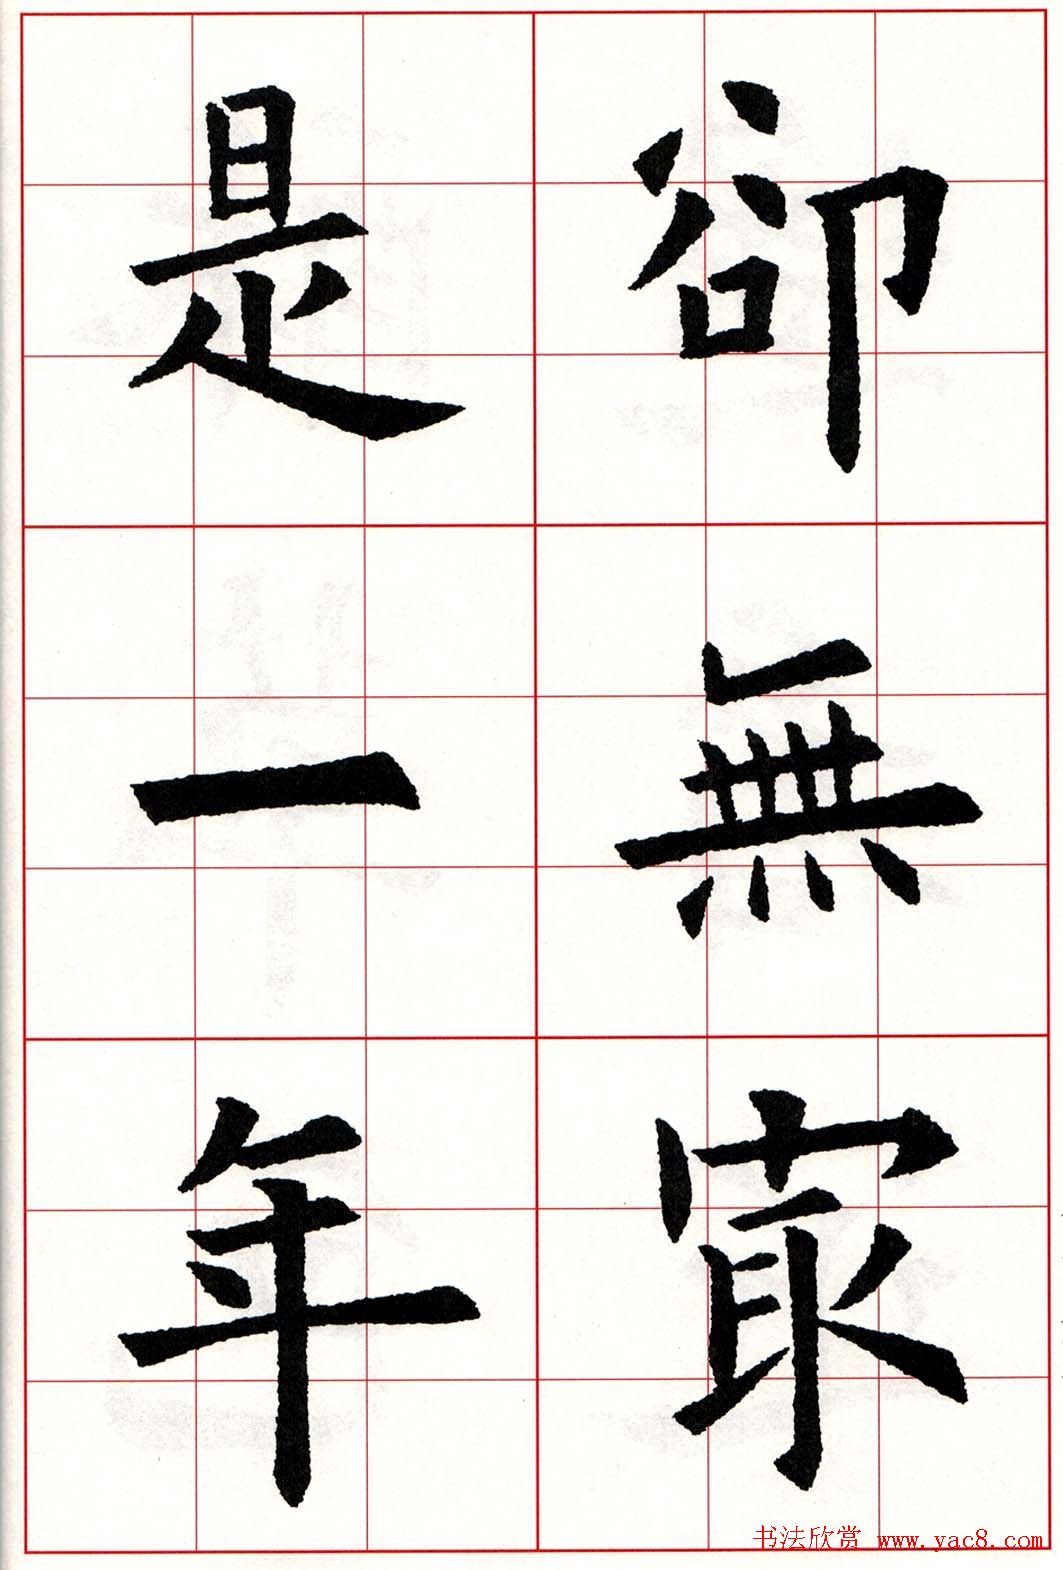 卻無㝡
是一年
书法欣赏 www.yac8.com